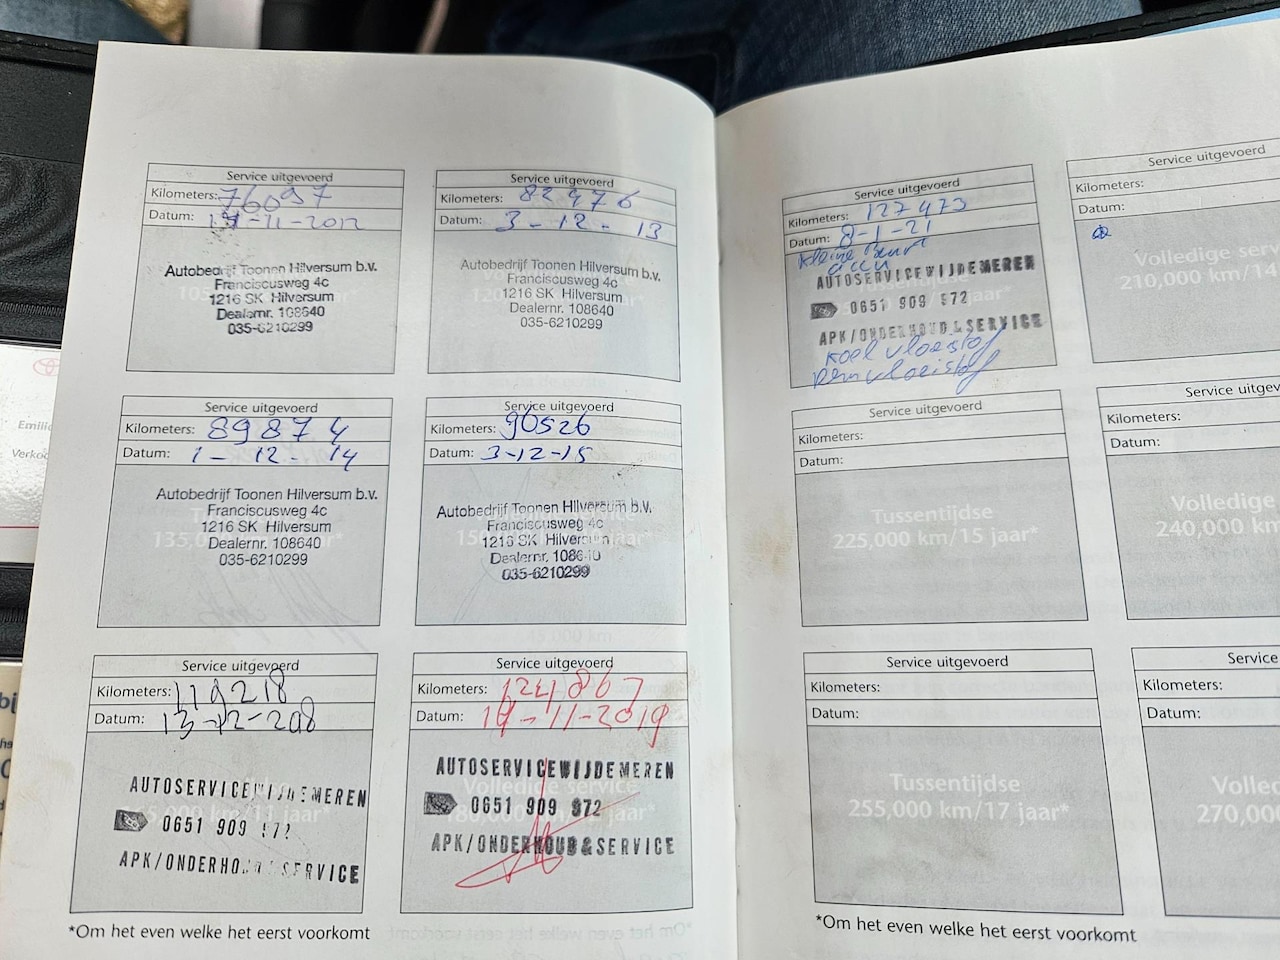 Service uitgevoerd
Kilometers: 76097
Datum: 19-11-2012
Autobedrijf Toonen Hilversum b.v.
Franciscusweg 4c
1216 SK Hilversum
Dealernr. 108640
035-6210299
Service uitgevoerd
Kilometers: 82476
Datum: 3-12-13
Autobedrijf Toonen Hilversum b.v.
Franciscusweg 4c
1216 SK Hilversum
Dealernr. 108640
035-6210299
Service uitgevoerd
Kilometers: 89874
Datum: 1-12-14
Autobedrijf Toonen Hilversum b.v.
Franciscusweg 4c
1216 SK Hilversum
Dealernr. 108640
035-6210299
135,0
Service uitgevoerd
Kilometers: 90526
Datum: 3-12-15
Autobedrijf Toonen Hilversum b.v.
Franciscusweg 4c
1216 SK Hilversum
Dealernr. 108640
035-6210299
Service uitgevoerd
Kilometers: 119218
Datum: 13-12-208
AUTOSERVICEWIJDEMEREN
0651 909 972
APK/ONDERHOUD&SERVICE
Service uitgevoerd
Kilometers: 124867
Datum: 19-11-2019
Volledige service
AUTOSERVICEWIJDEMEREN
0651 909 972
APK/ONDERHOUD&SERVICE
*Om het even welke het eerst voorkomt
Service uitgevoerd
Kilometers: 127473
Datum: 8-1-21
kleine beurt
accu
AUTOSERVICEWIJDEMEREN
0651 909 972
APK/ONDERHOUD&SERVICE
koel vloeistof
remvloeistof
Service uitgevoerd
Kilometers:
Datum:
Volledige serv
210,000 km/14
Service uitgevoerd
Kilometers:
Datum:
Tussentijdse
225,000 km/15 jaar*
Service uitgev
Kilometers:
Datum:
Volledige
240,000 km
Service uitgevoerd
Kilometers:
Datum:
Tussentijdse
255,000 km/17 jaar*
Service
Kilometers:
Datum:
Volled
270,000
*Om het even welke het eerst voorkomt